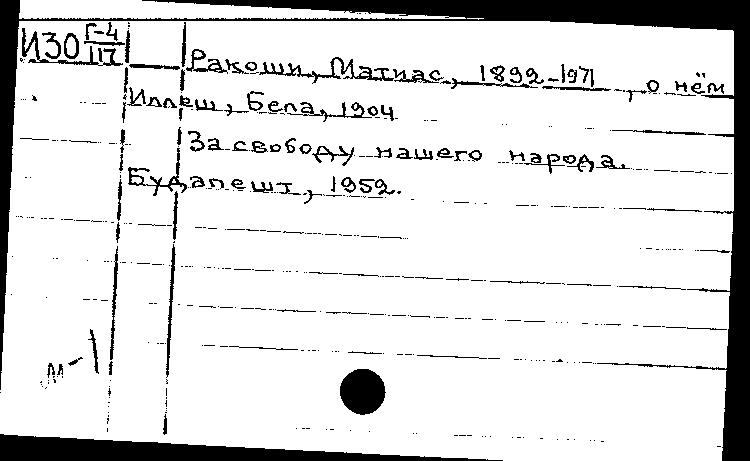 ИЗО Г-4/117
Ракоши, Матиас, 1892-1971, о нём
Иллеш, Бела, 1904
За свободу нашего народа.
Будапешт, 1952.
м-1